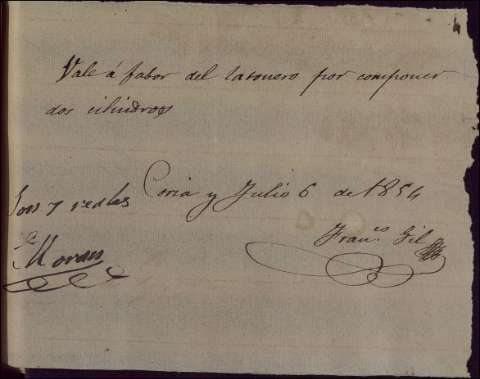 Vale á fabor del latonero por componer
dos cilindros
Coria y Julio 6 de 1854
Son 7 reales
Fran.co Gil
Moran